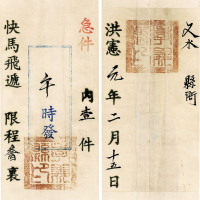 文水 縣衙
洪憲元年二月十五日
急件
內查件
午時發
快馬飛遞 限程